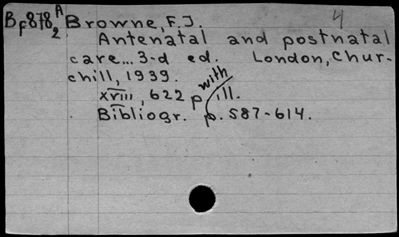 4
Bp878 A2 Browne, F.J.
Antenatal and postnatal
care... 3-d ed. London, Chur-
chill, 1939.
xviii, 622 p with ill.
Bibliogr. p. 587-614.